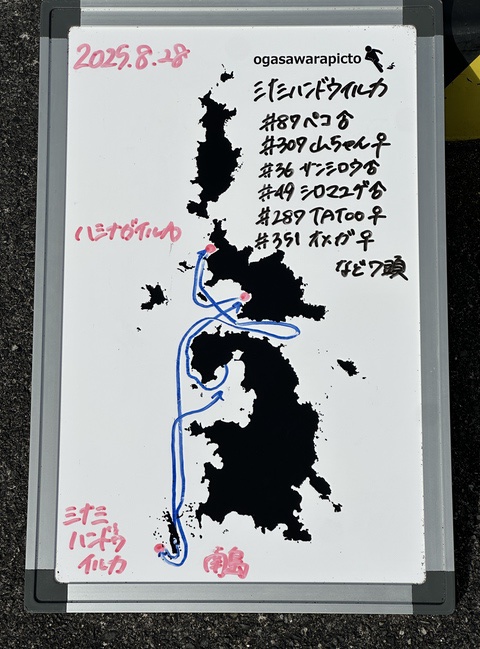 2025.8.28
ogasawarapicto
ミナミハンドウイルカ
#87 ペコ♂
#309 山ちゃん♀
#36 サンシロウ♂
#49 シロマユゲ♂
#289 TATOO♀
#351 オメガ♀
など7頭
ハシナガイルカ
ミナミ
ハンドウ
イルカ
南島